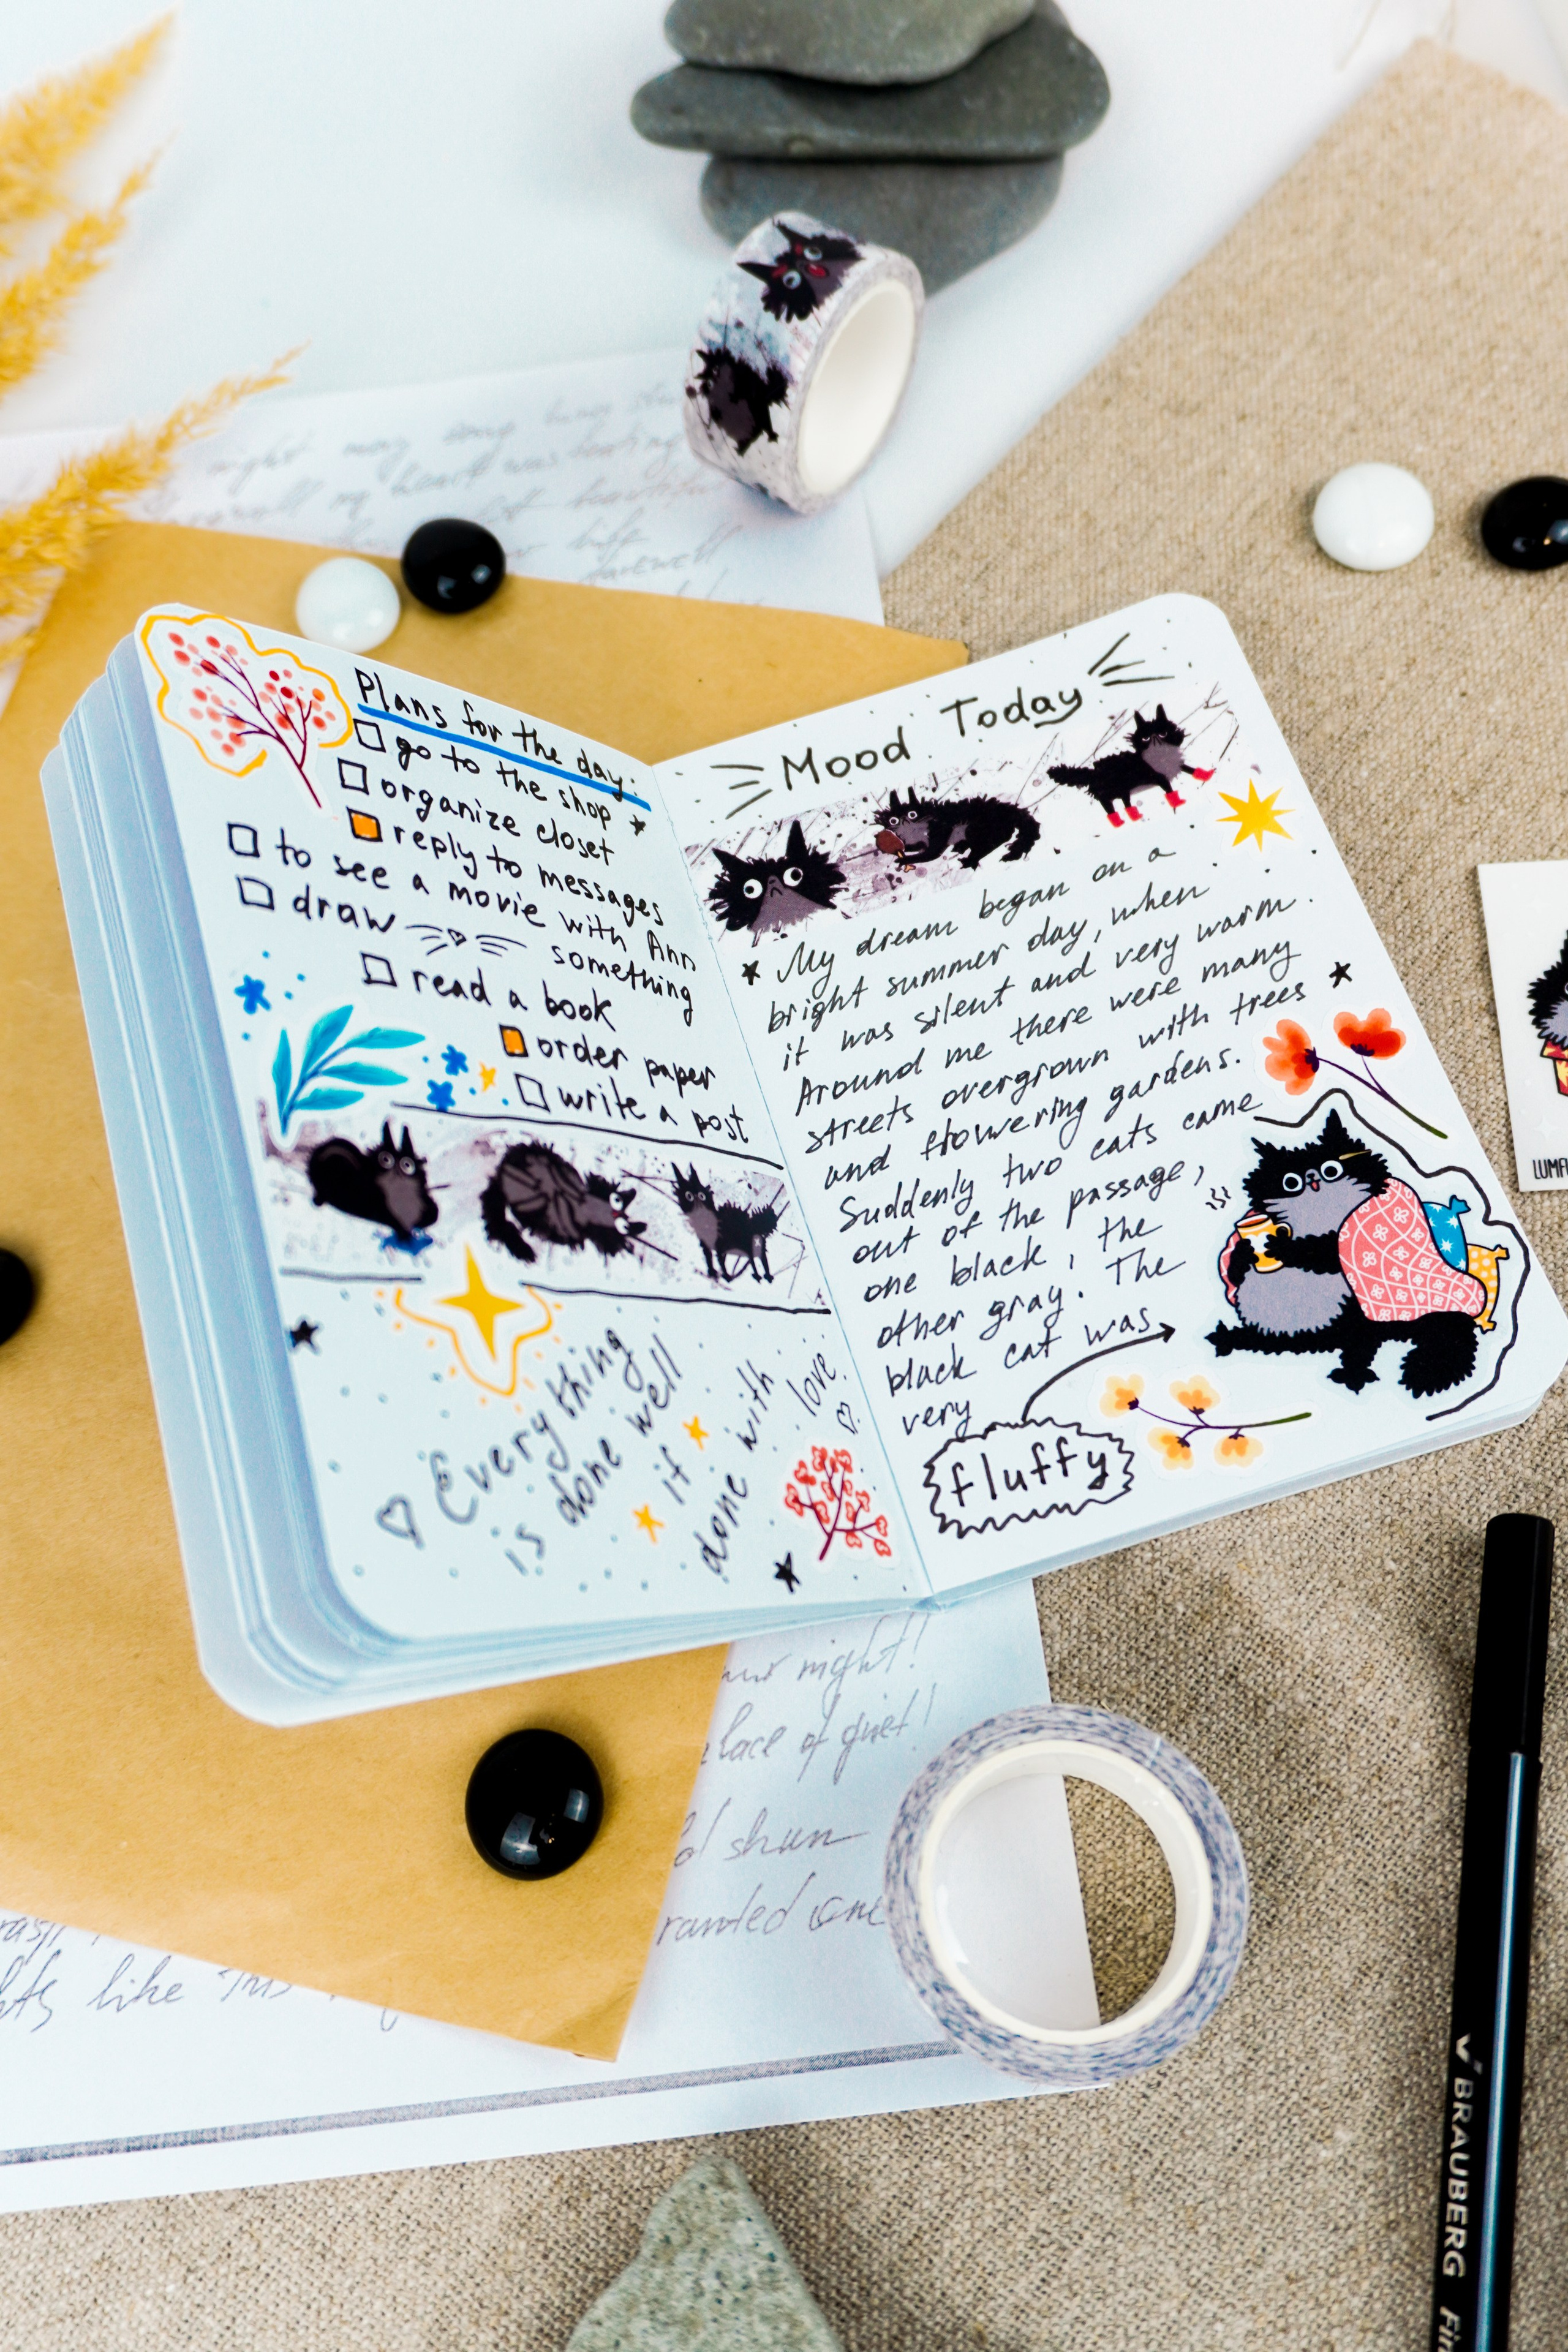 might may
my heart was
half
farewell
Plans for the day:
go to the shop
organize closet
reply to messages
to see a movie with Ann
draw something
read a book
order paper
write a post
Everything
is done well
if
done with
love
Mood Today
My dream began on a
bright summer day, when
it was silent and very warm.
Around me there were many
streets overgrown with trees
and flowering gardens.
Suddenly two cats came
out of the passage,
one black, the
other gray. The
black cat was
very
fluffy
night!
of quiet!
shun
like this
BRAUBERG